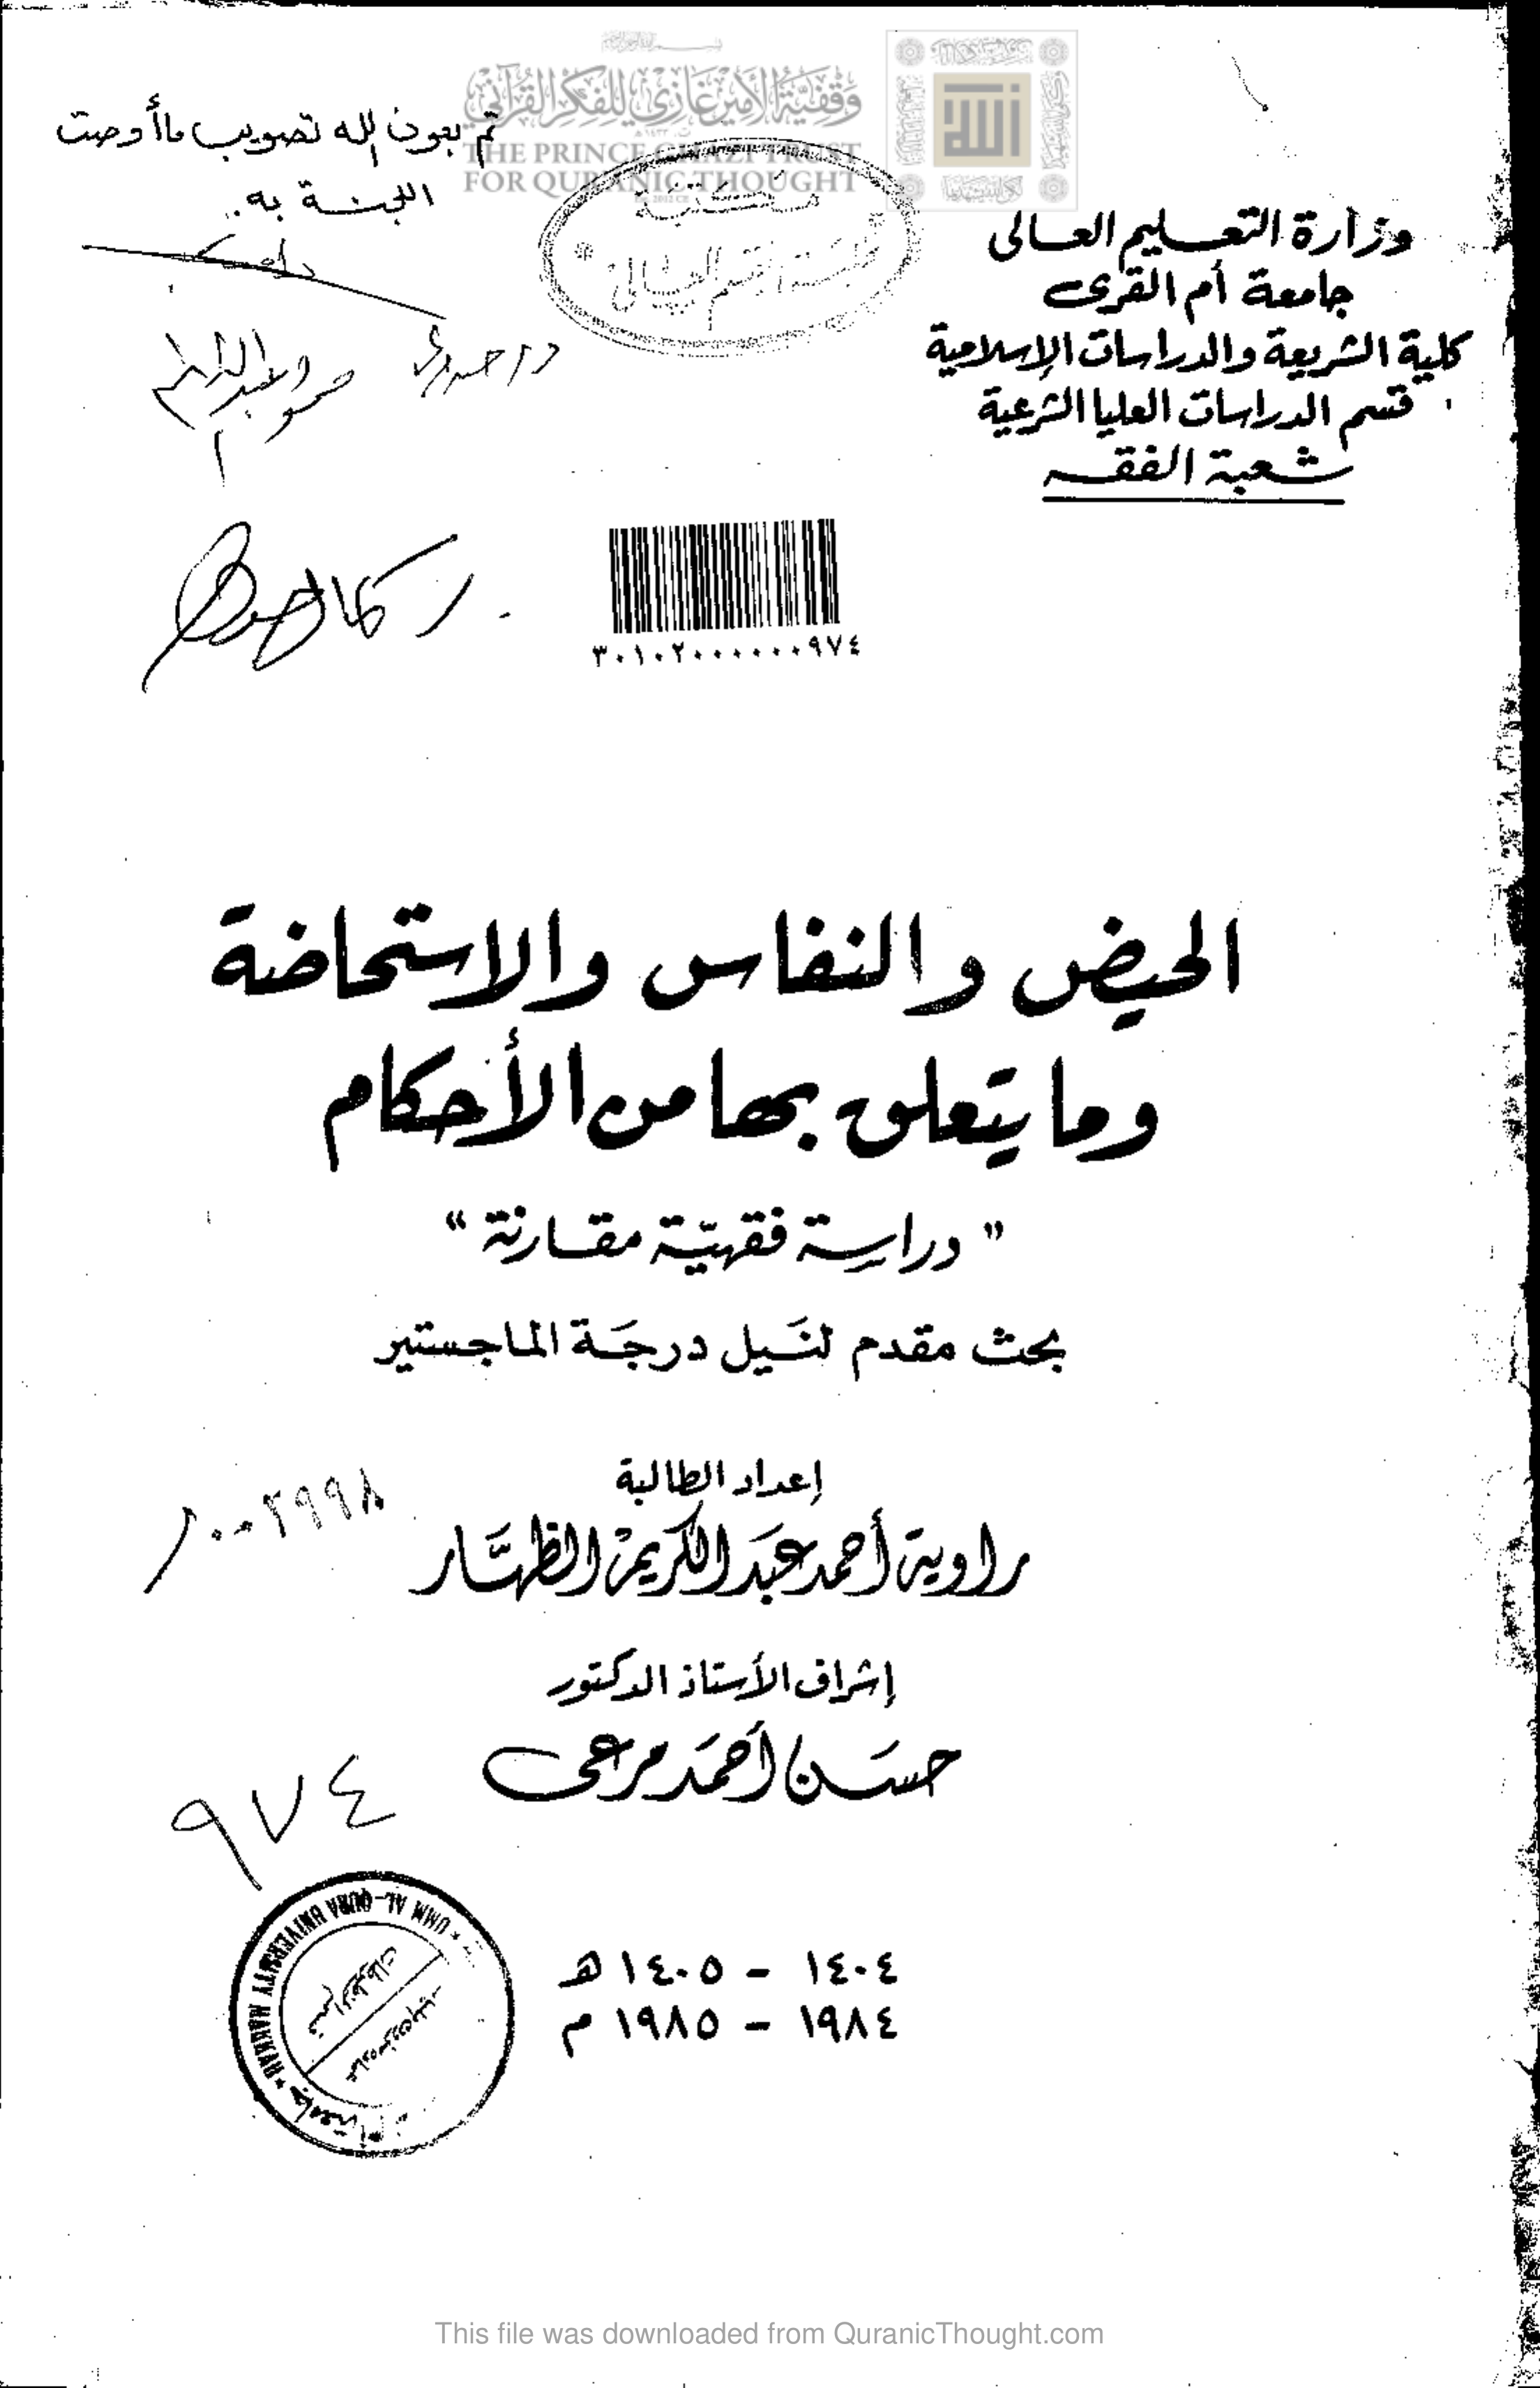 وقفية الأمير غازي للفكر القرآني
THE PRINCE GHAZI TRUST
FOR QURANIC THOUGHT
تم بعون الله تصويب ما أوصت
اللجنة به.
وزارة التعليم العالى
جامعة أم القرى
كلية الشريعة والدراسات الإسلامية
قسم الدراسات العليا الشرعية
شعبة الفقه
مكتبة
٣٠١٠٢٠٠٠٠٠٠٩٧٤
الحيض والنفاس والاستحاضة
وما يتعلق بها من الأحكام
" دراسة فقهيّة مقارنة "
بحث مقدم لنَيل درجَة الماجستير
إعداد الطالبة
راوية أحمد عبَد الكريمْ الظهَّار
إشراف الأستاذ الدكتور
حسَن أحمَد مرعى
٩٧٤
UMM AL-QURA UNIVERSITY MAKKAH
١٤٠٤ - ١٤٠٥ هـ
١٩٨٤ - ١٩٨٥ م
This file was downloaded from QuranicThought.com